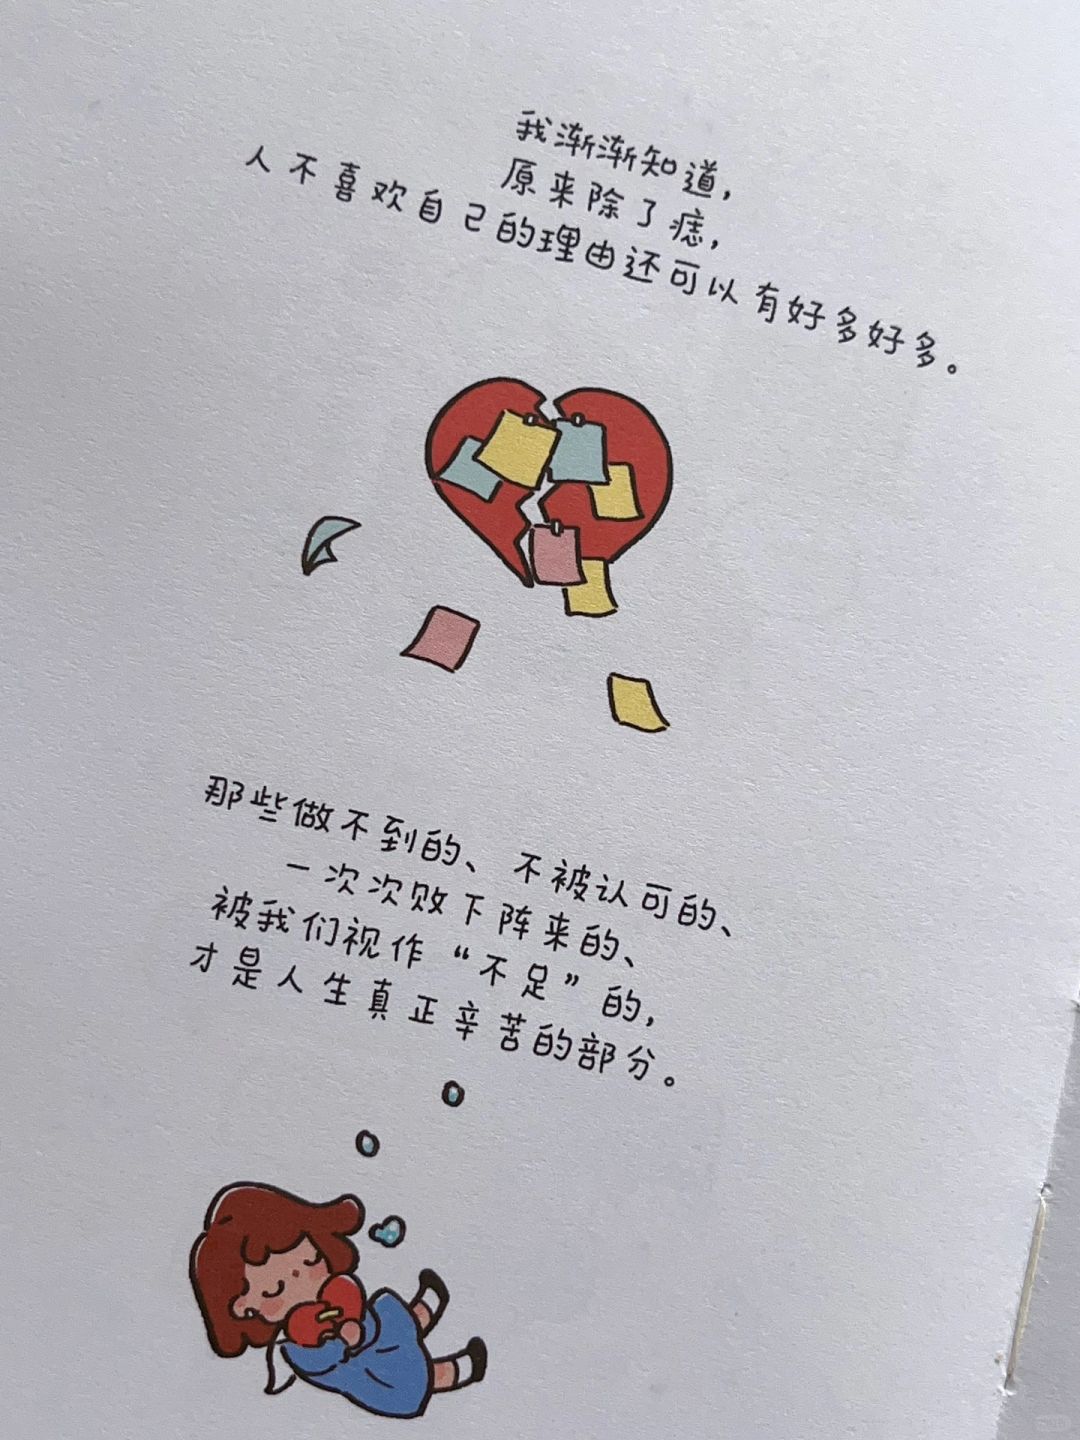 我渐渐知道，
原来除了痣，
人不喜欢自己的理由还可以有好多好多。
那些做不到的、不被认可的、
一次次败下阵来的、
被我们视作“不足”的，
才是人生真正辛苦的部分。